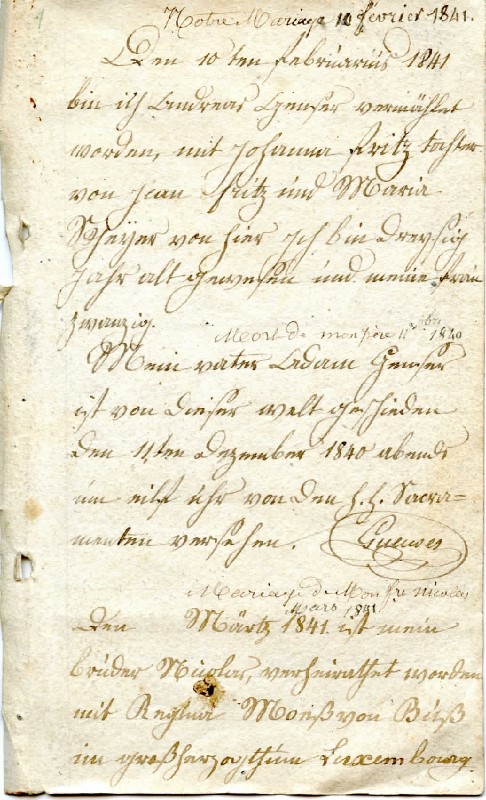 Notre Mariage 10 février 1841.
Den 10ten Februarius 1841
bin ich Andreas Genser vermählet
worden, mit Johanna Fritz tochter
von Jean Fritz und Maria
Scheÿer von hier Ich bin dreyßig
Jahr alt gewesen und meine frau
zwanzig.
Mort de mon père 11 Xbre 1840
Mein vater Adam Genser
ist von dieser welt geschieden
den 11ten Dezember 1840 abends
um eilf uhr von den h. h. Sacra=
menten versehen.
Mariage de Mon fre nicolas
Mars 1841
Den Märtz 1841 ist mein
brüder Nicolas, verheirathet worden
mit Regina Moiß von Büß
im großherzogthum Luxembourg